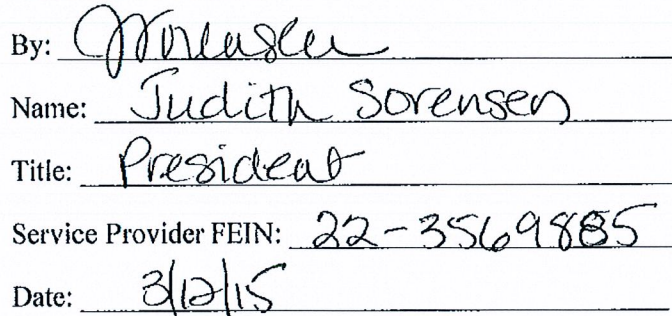 By:
Name: Judith Sorensen
Title: President
Service Provider FEIN: 22-3569885
Date: 3/12/15